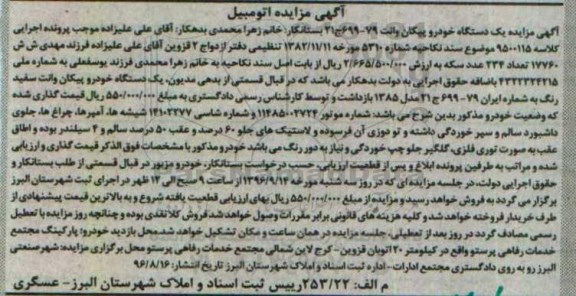 آگهی مزایده اتومبیل
آگهی مزایده یک دستگاه خودرو پیکان وانت ۷۹-۶۹۹ج۲۱ بستانکار: خانم زهرا محمدی بدهکار: آقای علی علیزاده موجب پرونده اجرایی
کلاسه ۹۵۰۰۱۱۵ موضوع سند نکاحیه شماره ۵۳۱۰ مورخه ۱۳۸۲/۱۱/۱۱ تنظیمی دفتر ازدواج ۲ قزوین آقای علی علیزاده فرزند مهدی ش ش
۱۷۷۶۰ تعداد ۲۳۴ عدد سکه به ارزش ۲/۶۶۵/۵۰۰/۰۰۰ ریال از بابت اصل سند نکاحیه به خانم زهرا محمدی فرزند یوسفعلی به شماره ملی
۴۳۲۳۳۳۴۲۱۵ باضافه حقوق اجرایی به دولت بدهکار می باشد که در قبال قسمتی از بدهی مدیون، یک دستگاه خودرو پیکان وانت سفید
رنگ به شماره ایران ۷۹-۶۹۹ ج ۲۱ مدل ۱۳۸۵ بازداشت و توسط کارشناس رسمی دادگستری به مبلغ ۵۵۰/۰۰۰/۰۰۰ ریال قیمت گذاری شده
که وضعیت خودرو مذکور بدین شرح می باشد: شماره موتور ۱۱۴۸۵۰۰۲۷۲۴ و شماره شاسی ۱۴۱۰۳۳۷۷ شیشه ها، آمپرها، چراغ ها، جلوی
داشبورد سالم و سپر خوردگی داشته و تو دوزی آن فرسوده و لاستیک های جلو ۶۰ درصد و عقب ۵۰ درصد سالم و ۴ سیلندر بوده و اطاق
عقب به صورت توری فلزی، گلگیر جلو چپ خوردگی و نیاز به دور رنگ می باشد. خودرو مذکور با مشخصات فوق الذکر قیمت گذاری و ارزیابی
شده و مراتب به طرفین پرونده ابلاغ و پس از قطعیت ارزیابی، حسب درخواست بستانکار، خودرو مزبور در قبال قسمتی از طلب بستانکار و
حقوق اجرایی دولت، در جلسه مزایده ای که در روز سه شنبه مورخه ۱۳۹۶/۹/۱۴ از ساعت ۹ صبح الی ۱۲ ظهر در اجرای ثبت شهرستان البرز
برگزار می گردد به فروش خواهد رسید و مزایده از مبلغ ۵۵۰/۰۰۰/۰۰۰ ریال بهای ارزیابی قطعیت یافته شروع و به بالاترین قیمت پیشنهادی از
طرف خریدار فروخته خواهد شد و کلیه هزینه های قانونی برابر مقررات وصول خواهد شد فروش کلا نقدی بوده و چنانچه روز مزایده با تعطیل
رسمی مصادف گردد در روز بعد از تعطیلی، جلسه مزایده در همان ساعت و مکان تشکیل خواهد شد. محل بازدید خودرو: پارکینگ مجتمع
خدمات رفاهی پرستو واقع در کیلومتر ۲۰ اتوبان قزوین - کرج لاین شمالی مجتمع خدمات رفاهی پرستو محل برگزاری مزایده: شهر صنعتی
البرز رو به روی دادگستری مجتمع ادارات - اداره ثبت اسناد و املاک شهرستان البرز تاریخ انتشار: ۹۶/۸/۱۶
م الف: ۲۵۳/۲۲ رییس ثبت اسناد و املاک شهرستان البرز - عسگری